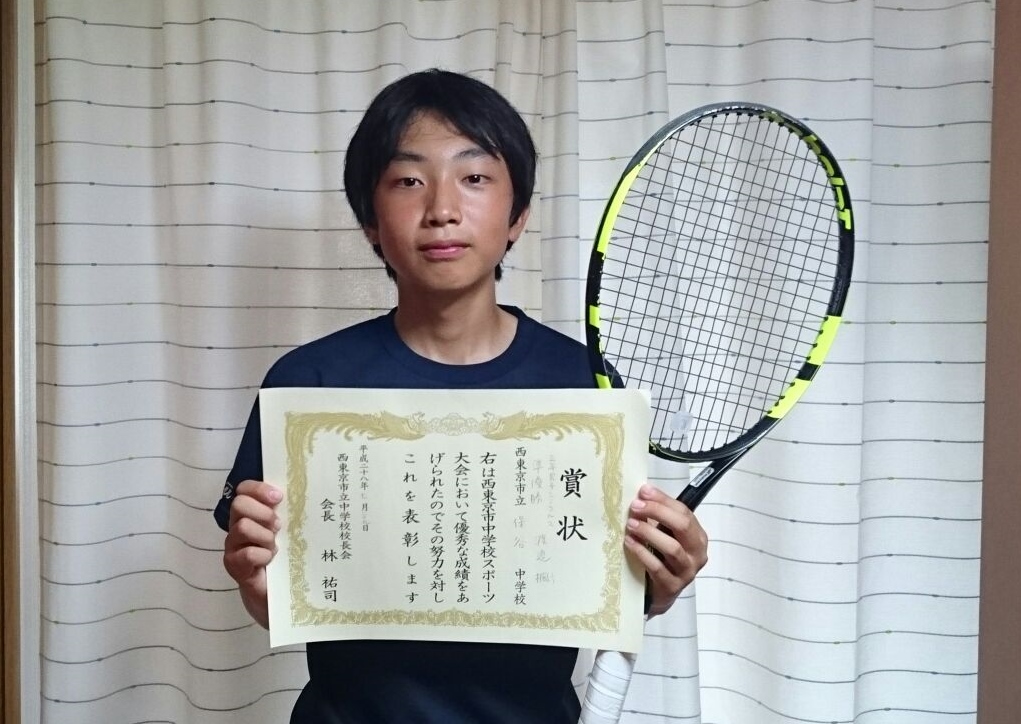 賞状
準優勝
西東京市立 保谷 中学校
右は西東京市中学校スポーツ
大会において優秀な成績をあ
げられたのでその努力を対し
これを表彰します
平成二十八年七月 日
西東京市立中学校校長会
会長 林 祐司